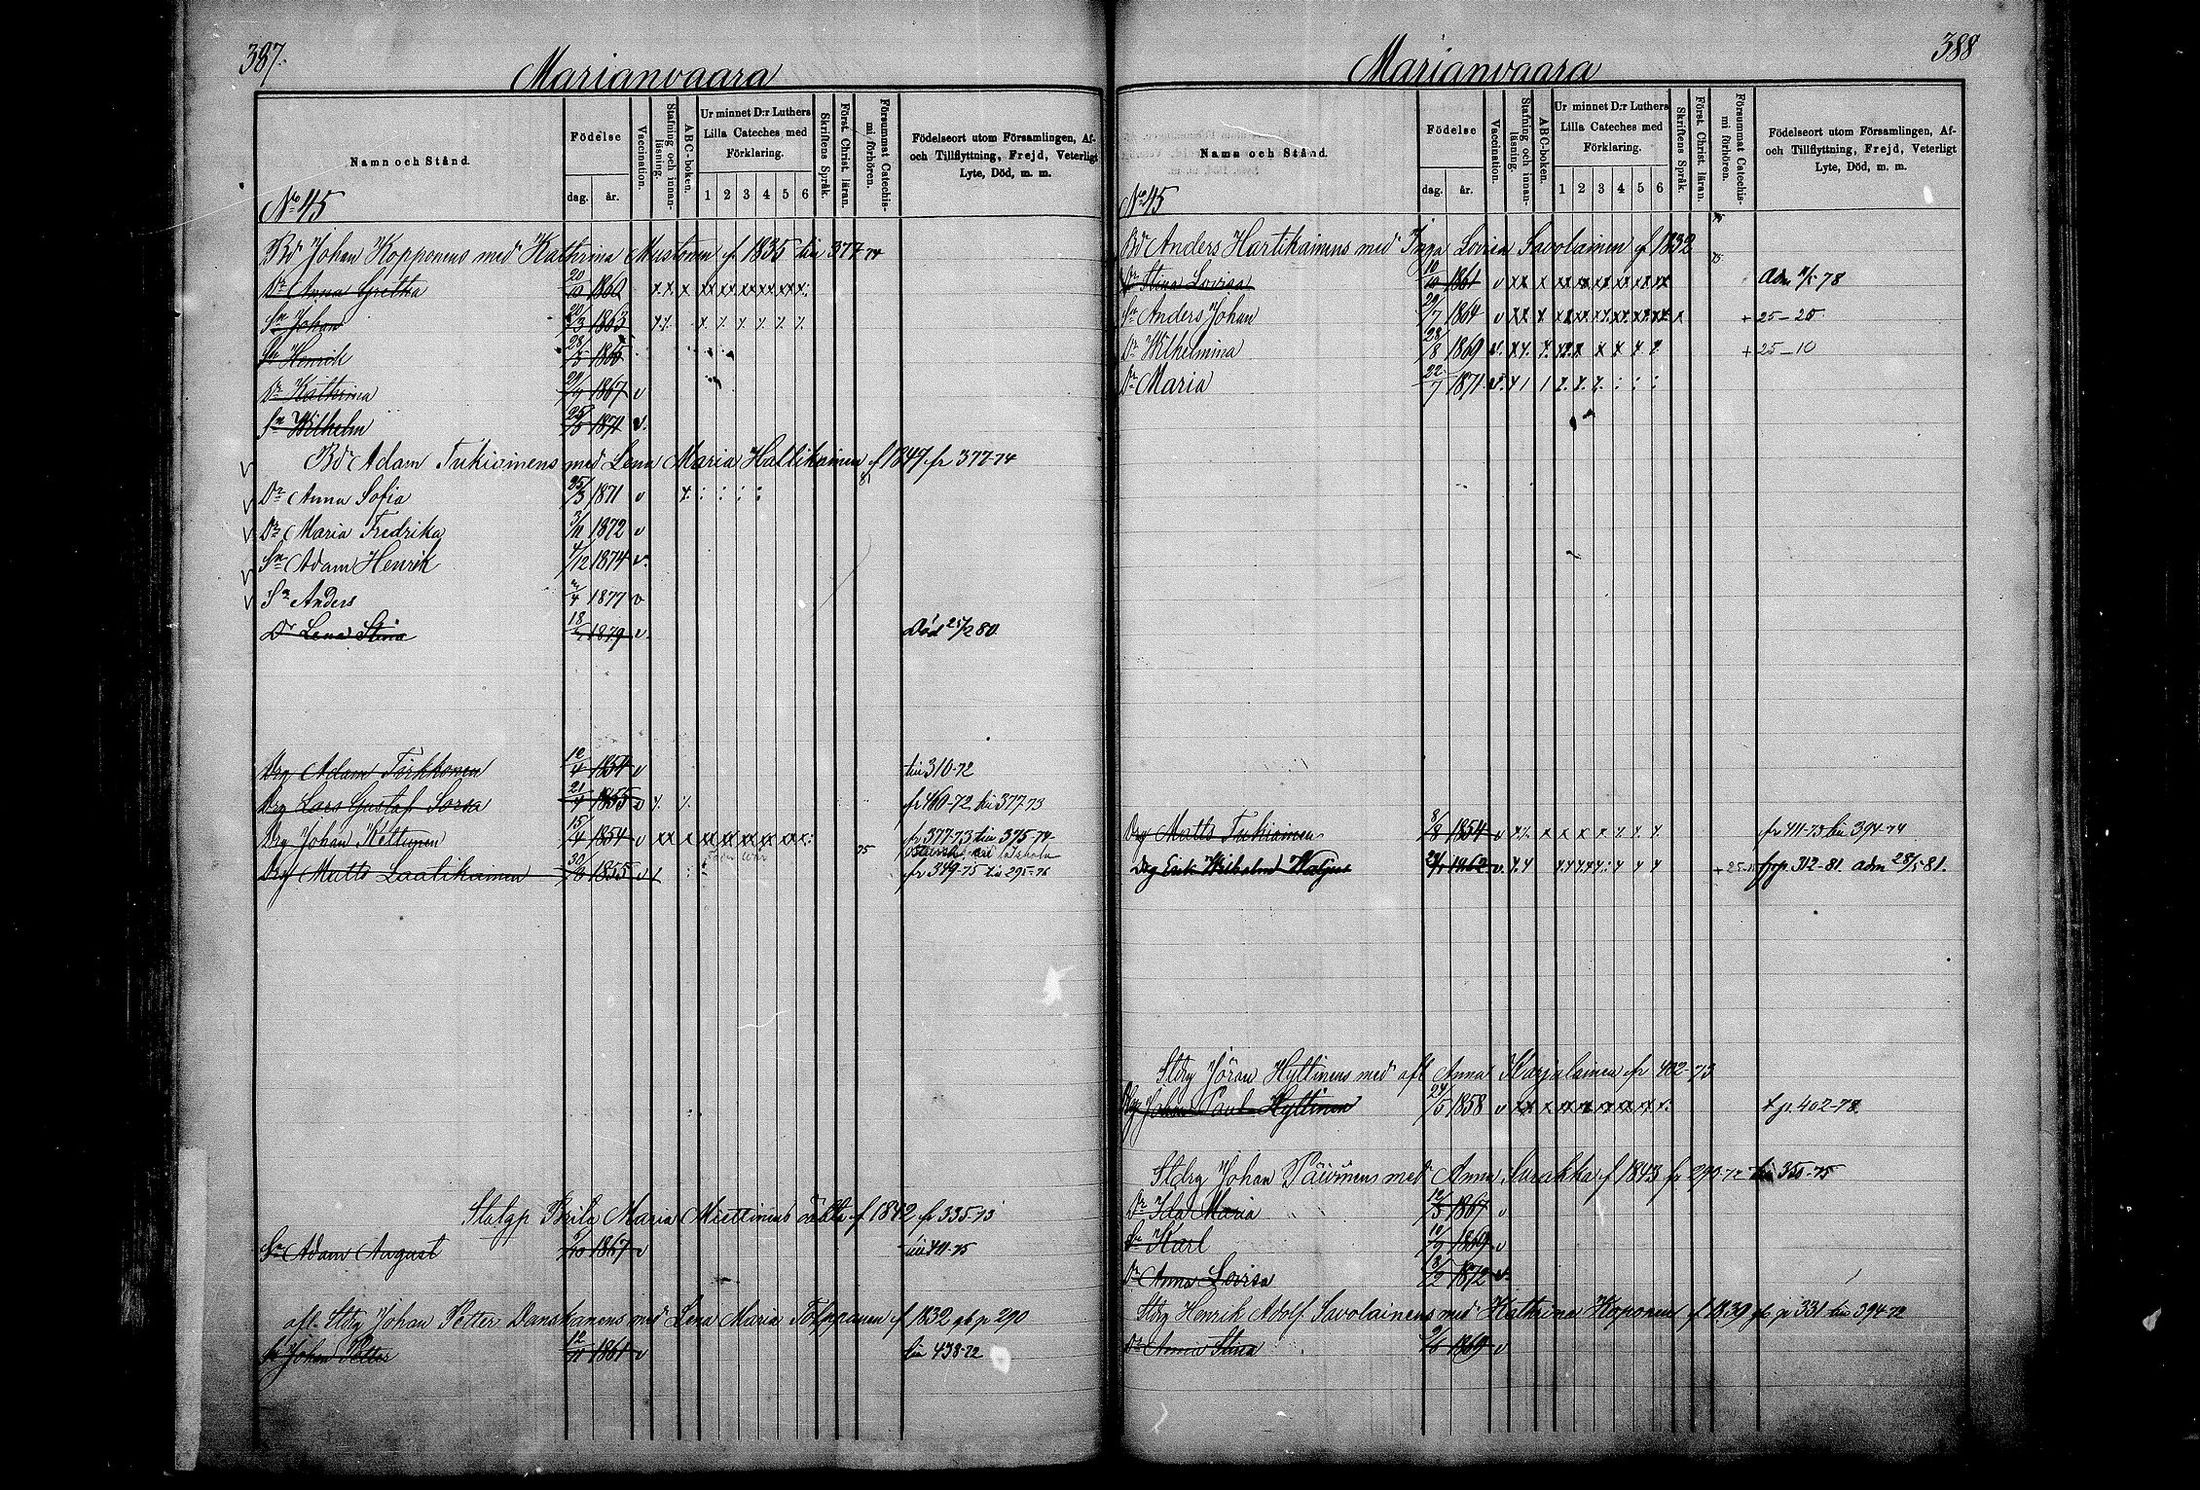 387.
Marianvaara
Namn och Stånd.
Födelse
dag. år.
Vaccination.
Stafning och innan-
läsning.
ABC-boken.
Ur minnet D:r Luthers
Lilla Cateches med
Förklaring.
1 2 3 4 5 6
Skriftens Språk.
Först. Christ. läran.
Försummat Catechis-
mi förhören.
Födelseort utom Församlingen, Af-
och Tillflyttning, Frejd, Veterligt
Lyte, Död, m. m.
No 45
Bd Johan Kopponens med Kathrina Mustonen f. 1835 till 377-74
Dr Anna Gretha 1860
Sn Johan 1863
Sn Henrik 1865
Dr Kathrina 1867 v
Sn Wilhelm 1871 v.
Bdr Adam Tukiainens med Lena Maria Hallikainen f 1847 fr 377-74
Dr Anna Sofia 25/3 1871 v
Dr Maria Fredrika 3/11 1872 v
Sn Adam Henrik 4/12 1874 v.
Sn Anders 1877 v
Dr Lena Stina 1879 v. Död 25/2 80
Drg Adam Törkkönen 12/4 1854 v till 310-72
Drg Lars Gustaf Sorsa 21/4 1855 v fr 460-72 till 377-73
Drg Johan Kettunen 15/4 1854 v fr 377-73 till 375-74
Drg Matts Laatikainen 1855 v fr 349-75 till 295-76
Brita Maria Miettinens oäkta f 1842 fr 335-73
Sn Adam August 1867 v till 411-75
afl. Stdrg Johan Petter Danskanens med Lena Maria Toppanen f 1832 gb p 290
Sn Johan Petter 12/11 1861 v till 438-72
388
Marianvaara
Namn och Stånd.
Födelse
dag. år.
Vaccination.
Stafning och innan-
läsning.
ABC-boken.
Ur minnet D:r Luthers
Lilla Cateches med
Förklaring.
1 2 3 4 5 6
Skriftens Språk.
Först. Christ. läran.
Försummat Catechis-
mi förhören.
Födelseort utom Församlingen, Af-
och Tillflyttning, Frejd, Veterligt
Lyte, Död, m. m.
No 45
Bd Anders Hartikainens med Inga Lovisa Savolainen f 1832
Dr Stina Lovisa 1861 v Adm 78
Sn Anders Johan 29/7 1864 v + 25-20
Dr Wilhelmina 28/8 1869 v. + 25-10
Dr Maria 22/7 1871 v.
Drg Matts Tukiainen 8/8 1854 v fr 411-73 till 394-74
Drg Erik Wilhelm 1862 v. 312-81. adm 28/5 81.
Stdrg Jöran Hyttinens med afl Anna Karjalainen fr 402-73
Drg Johan Paul Hyttinen 24/5 1858 v 402-78
Stdrg Johan Päivinens med Anna Surakka f 1843 fr 290-72 till 350-75
Dr Ida Maria 1867 v
Sn Karl 10/9 1869 v
Dr Anna Lovisa 18/2 1872 v
Stdrg Henrik Adolf Savolainens med Kathrina Koponen f 1830 gb p 331 till 394-72
Dr Anna Stina 1869 v